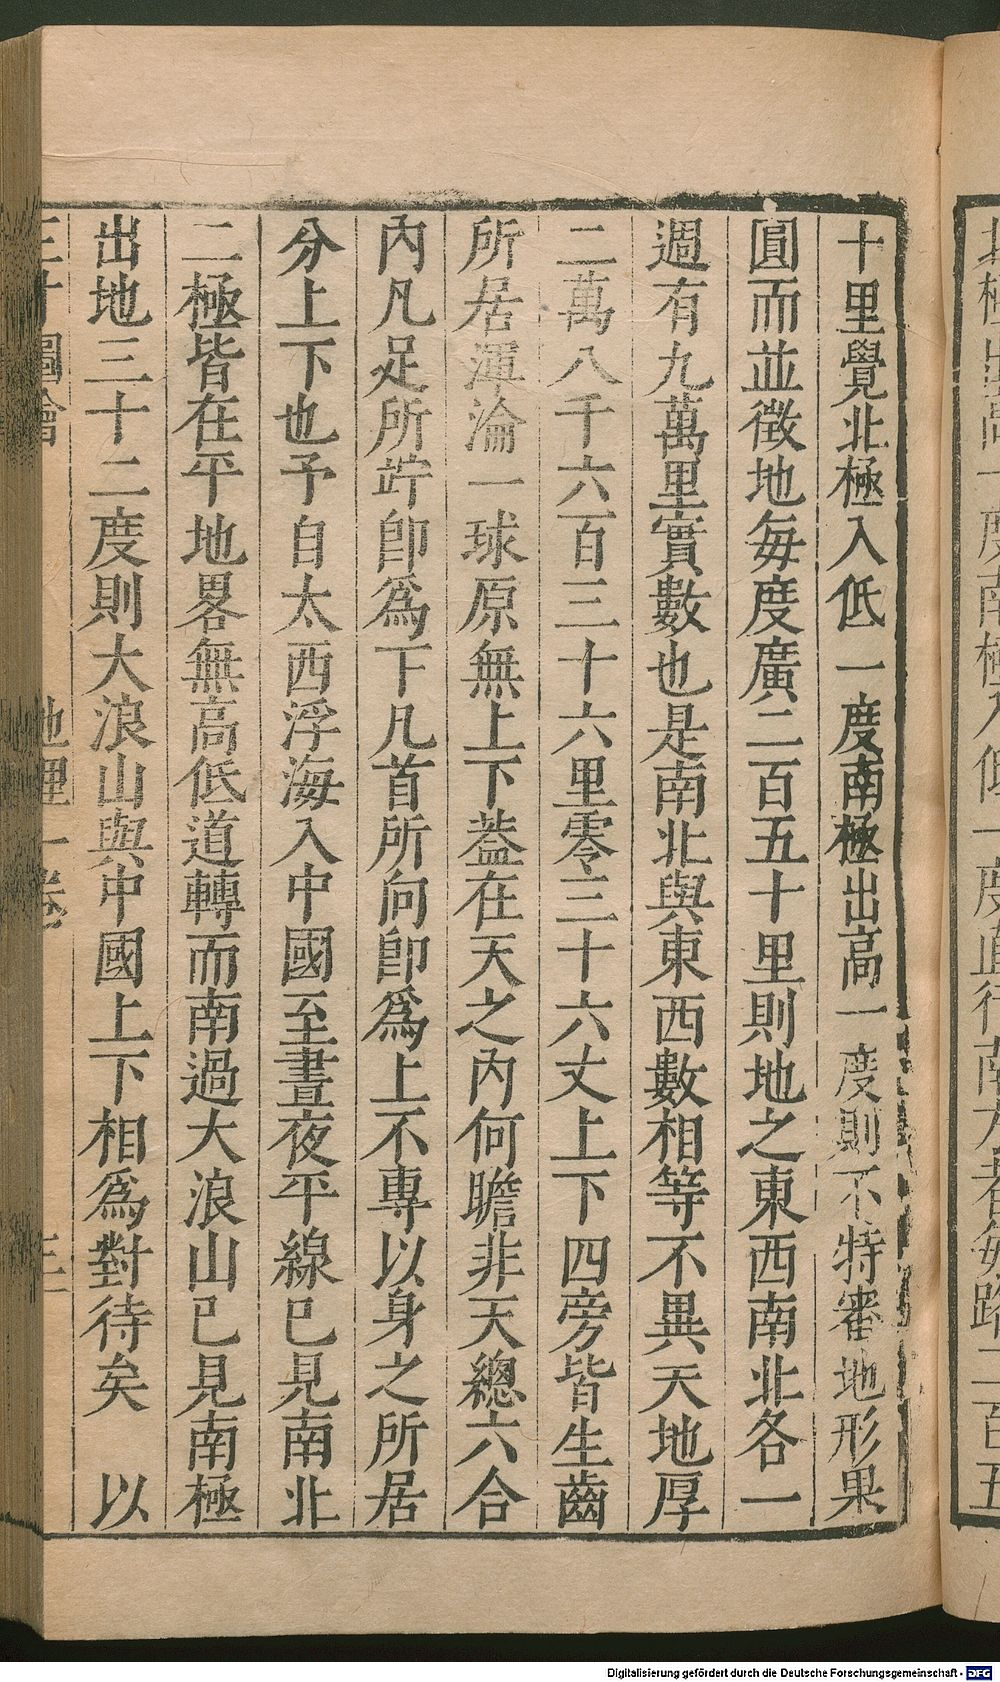 十里覺北極入低一度南極出高一度則不特審地形果
圓而並徵地每度廣二百五十里則地之東西南北各一
週有九萬里實數也是南北與東西數相等不異天地厚
二萬八千六百三十六里零三十六丈上下四旁皆生齒
所居渾淪一球原無上下葢在天之內何瞻非天總六合
內凡足所竚卽爲下凡首所向卽爲上不專以身之所居
分上下也予自太西浮海入中國至晝夜平線已見南北
二極皆在平地畧無高低道轉而南過大浪山已見南極
出地三十二度則大浪山與中國上下相爲對待矣 以
三才圖會 地理一卷 三
Digitalisierung gefördert durch die Deutsche Forschungsgemeinschaft - DFG